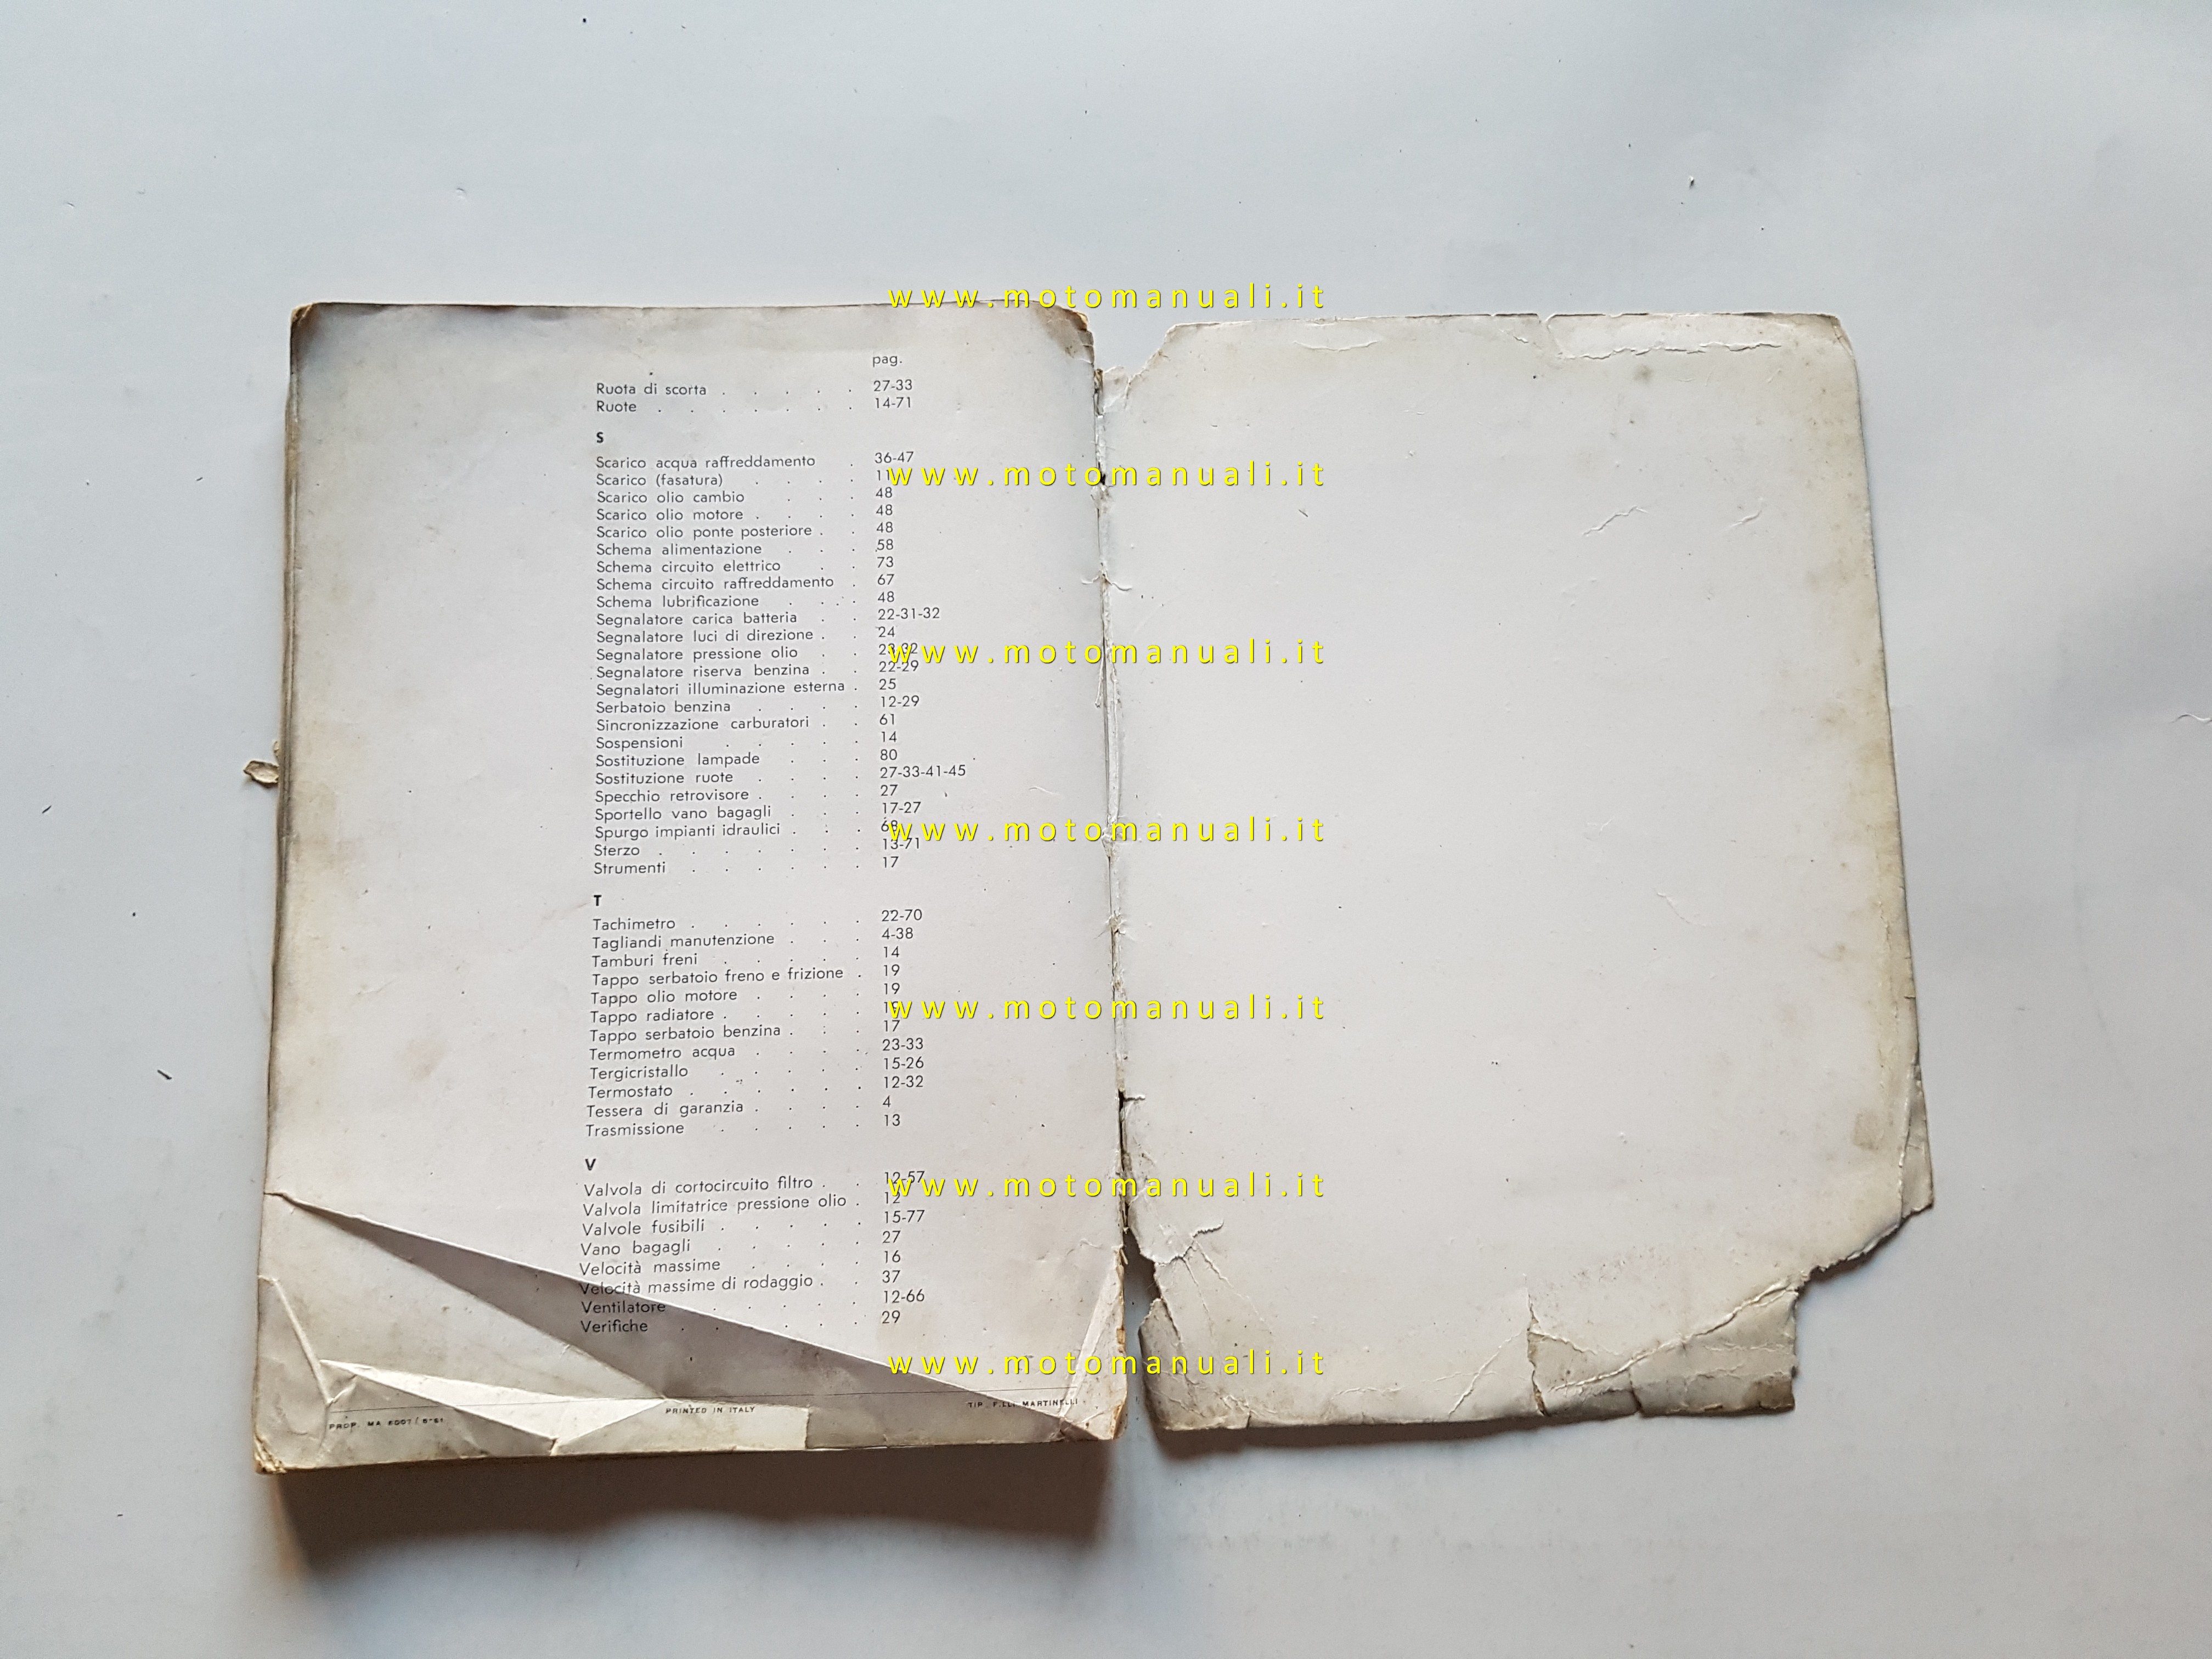 www.motomanuali.it
pag.
Ruota di scorta . . . . . 27-33
Ruote . . . . . . . 14-71
S
Scarico acqua raffreddamento . 36-47
www.motomanuali.it
Scarico (fasatura) . . . . 11
Scarico olio cambio . . . 48
Scarico olio motore . . . . 48
Scarico olio ponte posteriore . . 48
Schema alimentazione . . . 58
Schema circuito elettrico . . 73
Schema circuito raffreddamento . 67
Schema lubrificazione . . . 48
Segnalatore carica batteria . . 22-31-32
Segnalatore luci di direzione . . 24
Segnalatore pressione olio . . 23-32
www.motomanuali.it
Segnalatore riserva benzina . . 22-29
Segnalatori illuminazione esterna . 25
Serbatoio benzina . . . . 12-29
Sincronizzazione carburatori . . 61
Sospensioni . . . . . 14
Sostituzione lampade . . . 80
Sostituzione ruote . . . . 27-33-41-45
Specchio retrovisore . . . . 27
Sportello vano bagagli . . . 17-27
Spurgo impianti idraulici . . .
www.motomanuali.it
Sterzo . . . . . . . 13-71
Strumenti . . . . . . 17
T
Tachimetro . . . . . . 22-70
Tagliandi manutenzione . . . 4-38
Tamburi freni . . . . . 14
Tappo serbatoio freno e frizione . 19
Tappo olio motore . . . . 19
Tappo radiatore . . . . .
www.motomanuali.it
Tappo serbatoio benzina . . . 17
Termometro acqua . . . . 23-33
Tergicristallo . . . . . 15-26
Termostato . . . . . . 12-32
Tessera di garanzia . . . . 4
Trasmissione . . . . . 13
V
Valvola di cortocircuito filtro . . 12-57
www.motomanuali.it
Valvola limitatrice pressione olio . 12
Valvole fusibili . . . . . 15-77
Vano bagagli . . . . . 27
Velocità massime . . . . 16
Velocità massime di rodaggio . . 37
Ventilatore . . . . . 12-66
Verifiche . . . . . . 29
www.motomanuali.it
PROP. MA PRINTED IN ITALY TIP. F.LLI MARTINELLI